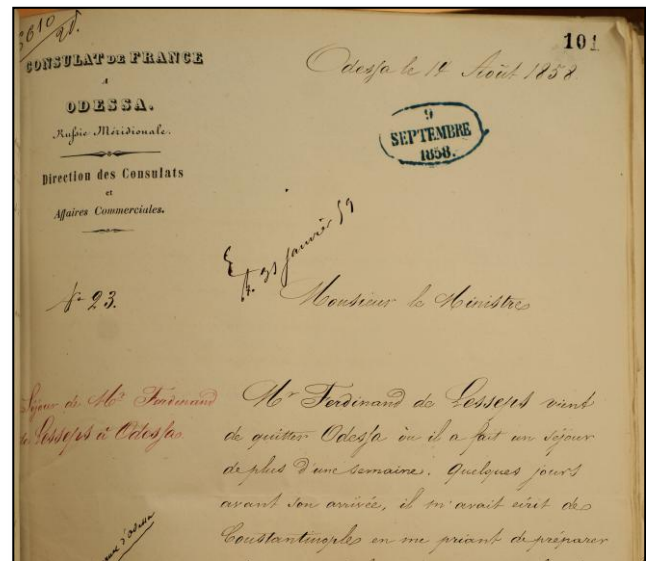 101
CONSULAT DE FRANCE
A
ODESSA.
Russie Méridionale.
Direction des Consulats
et
Affaires Commerciales.
Odessa le 14 Août 1858.
9
SEPTEMBRE
1858.
31 janvier 59
Nº 23.
Monsieur le Ministre
Séjour de Mr. Ferdinand
de Lesseps à Odessa.
Mr Ferdinand de Lesseps vient
de quitter Odessa où il a fait un séjour
de plus d'une semaine. Quelques jours
avant son arrivée, il m'avait écrit de
Constantinople en me priant de préparer